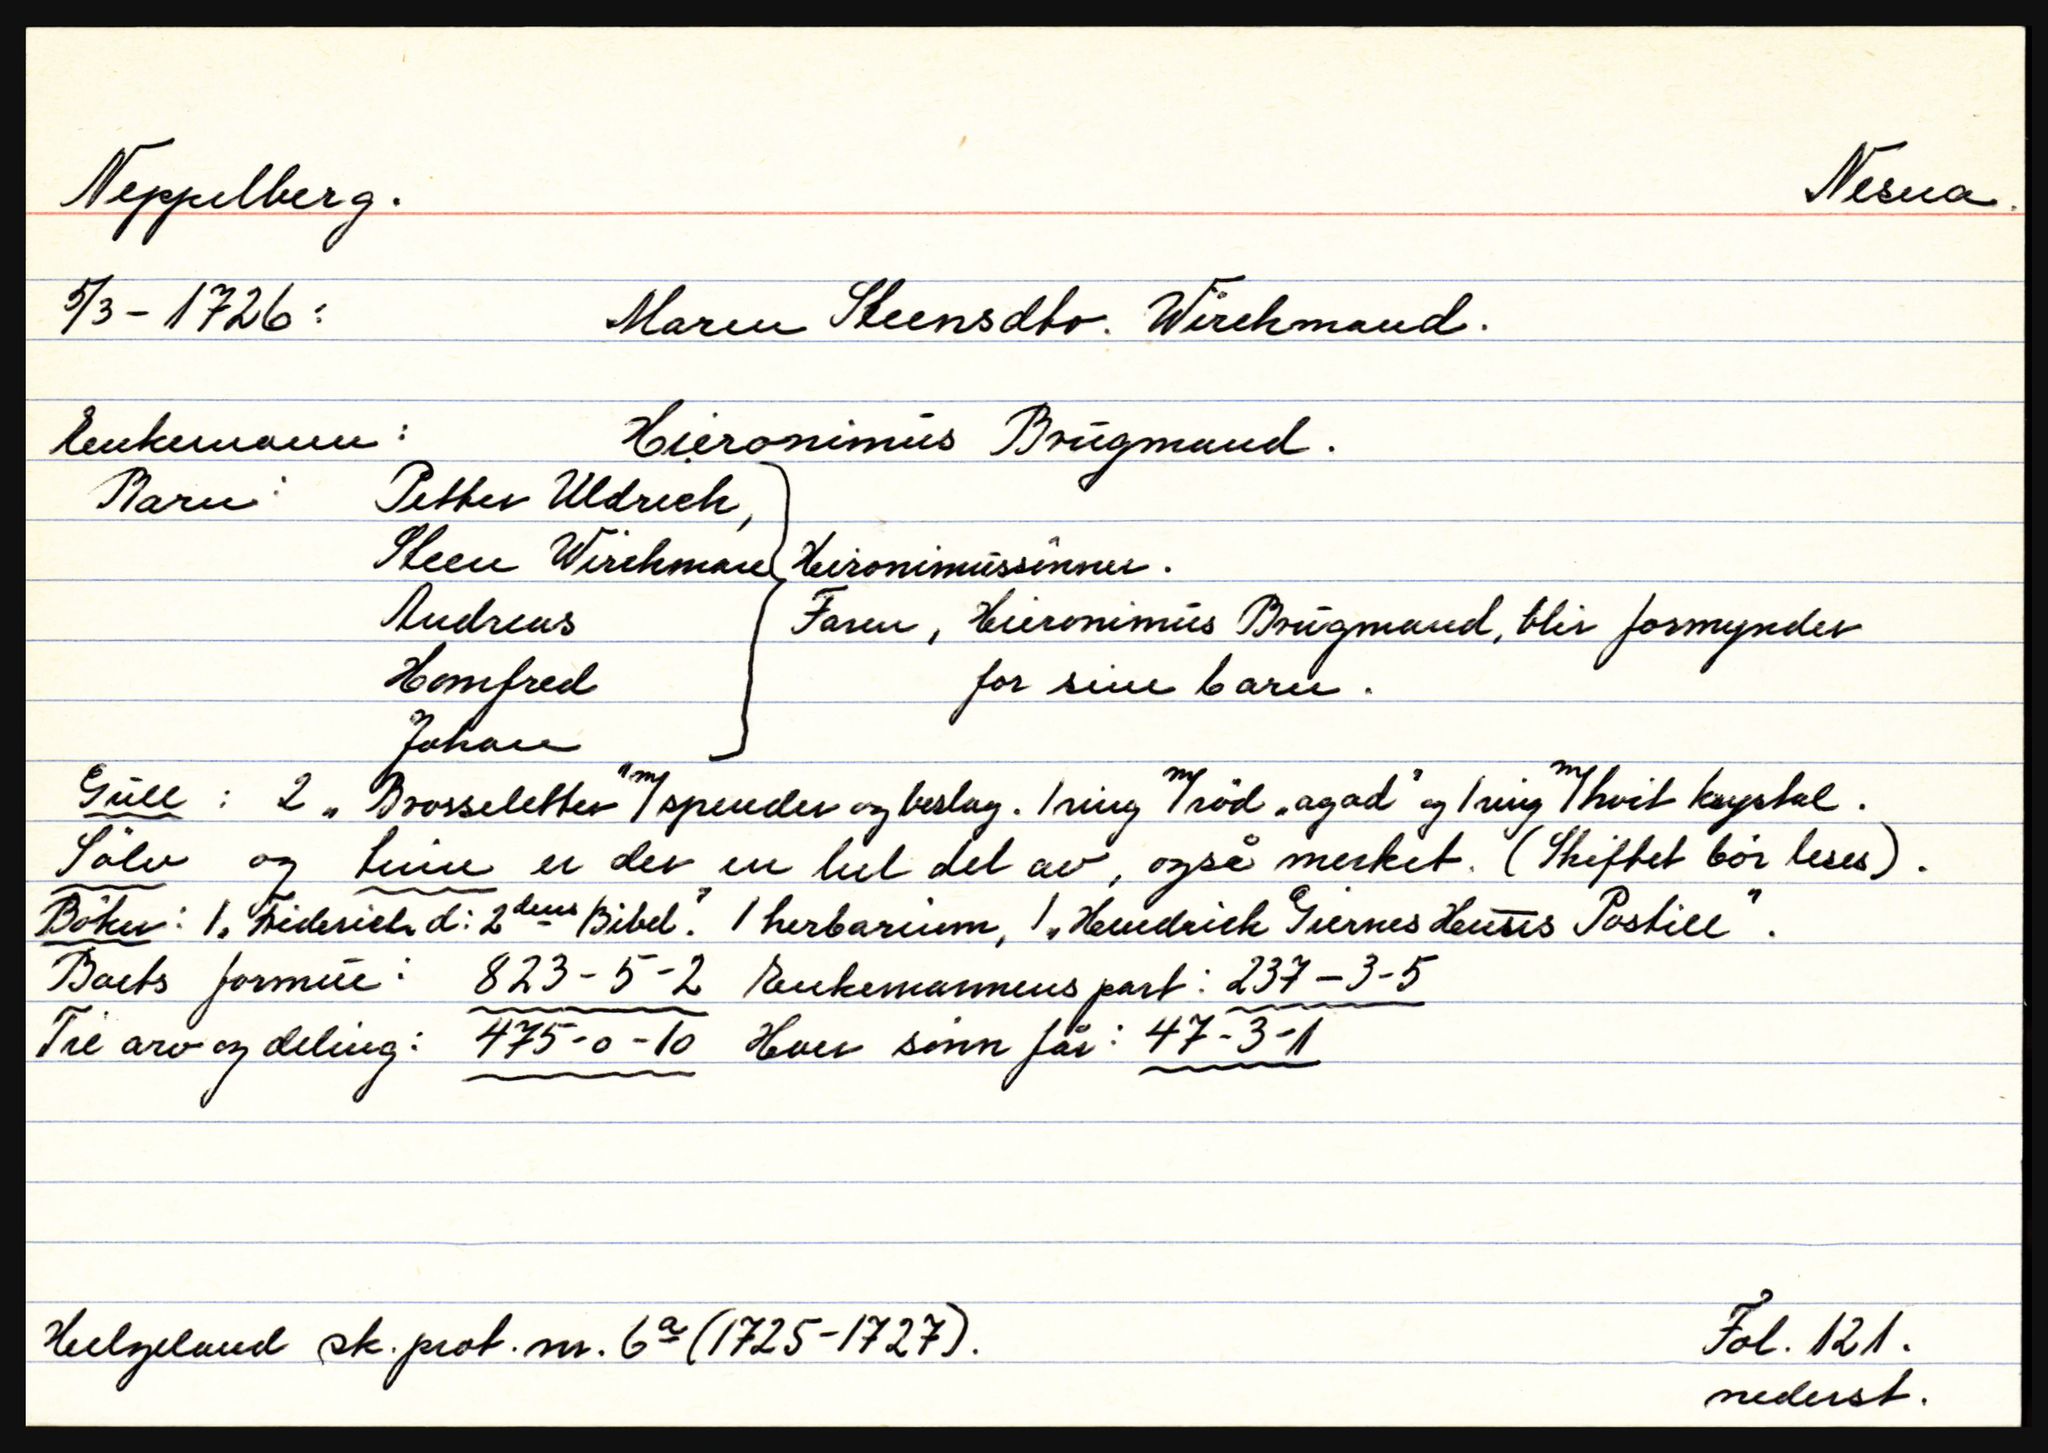 Neppelberg. Nesna.
5/3 - 1726: Maren Steensdtr. Wirchmand.
Enkemann: Hieronimus Brugmand.
Barn: Petter Uldrich,
Steen Wirchman Hironimussønner.
Andreas Faren, Hieronimus Brugmand, blir formynder
Homfred for sine barn.
Johan
Gull: 2 „Brosseletter" m/ spender og beslag. 1 ring m/ röd „agad" og 1 ring m/ hvit krystal.
Sölv og tinn er der en hel del av, også merket. (Skiftet bör leses).
Böker: 1 „Friderich d: 2dens Bibel". 1 herbarium, 1 „Hendrick Giernes Huus Postill".
Boets formue: 823-5-2 Enkemannens part: 237-3-5
Til arv og deling: 475-0-10 Hver sönn får: 47-3-1
Helgeland sk. prot. nr. 6a (1725-1727). Fol. 121.
nederst.